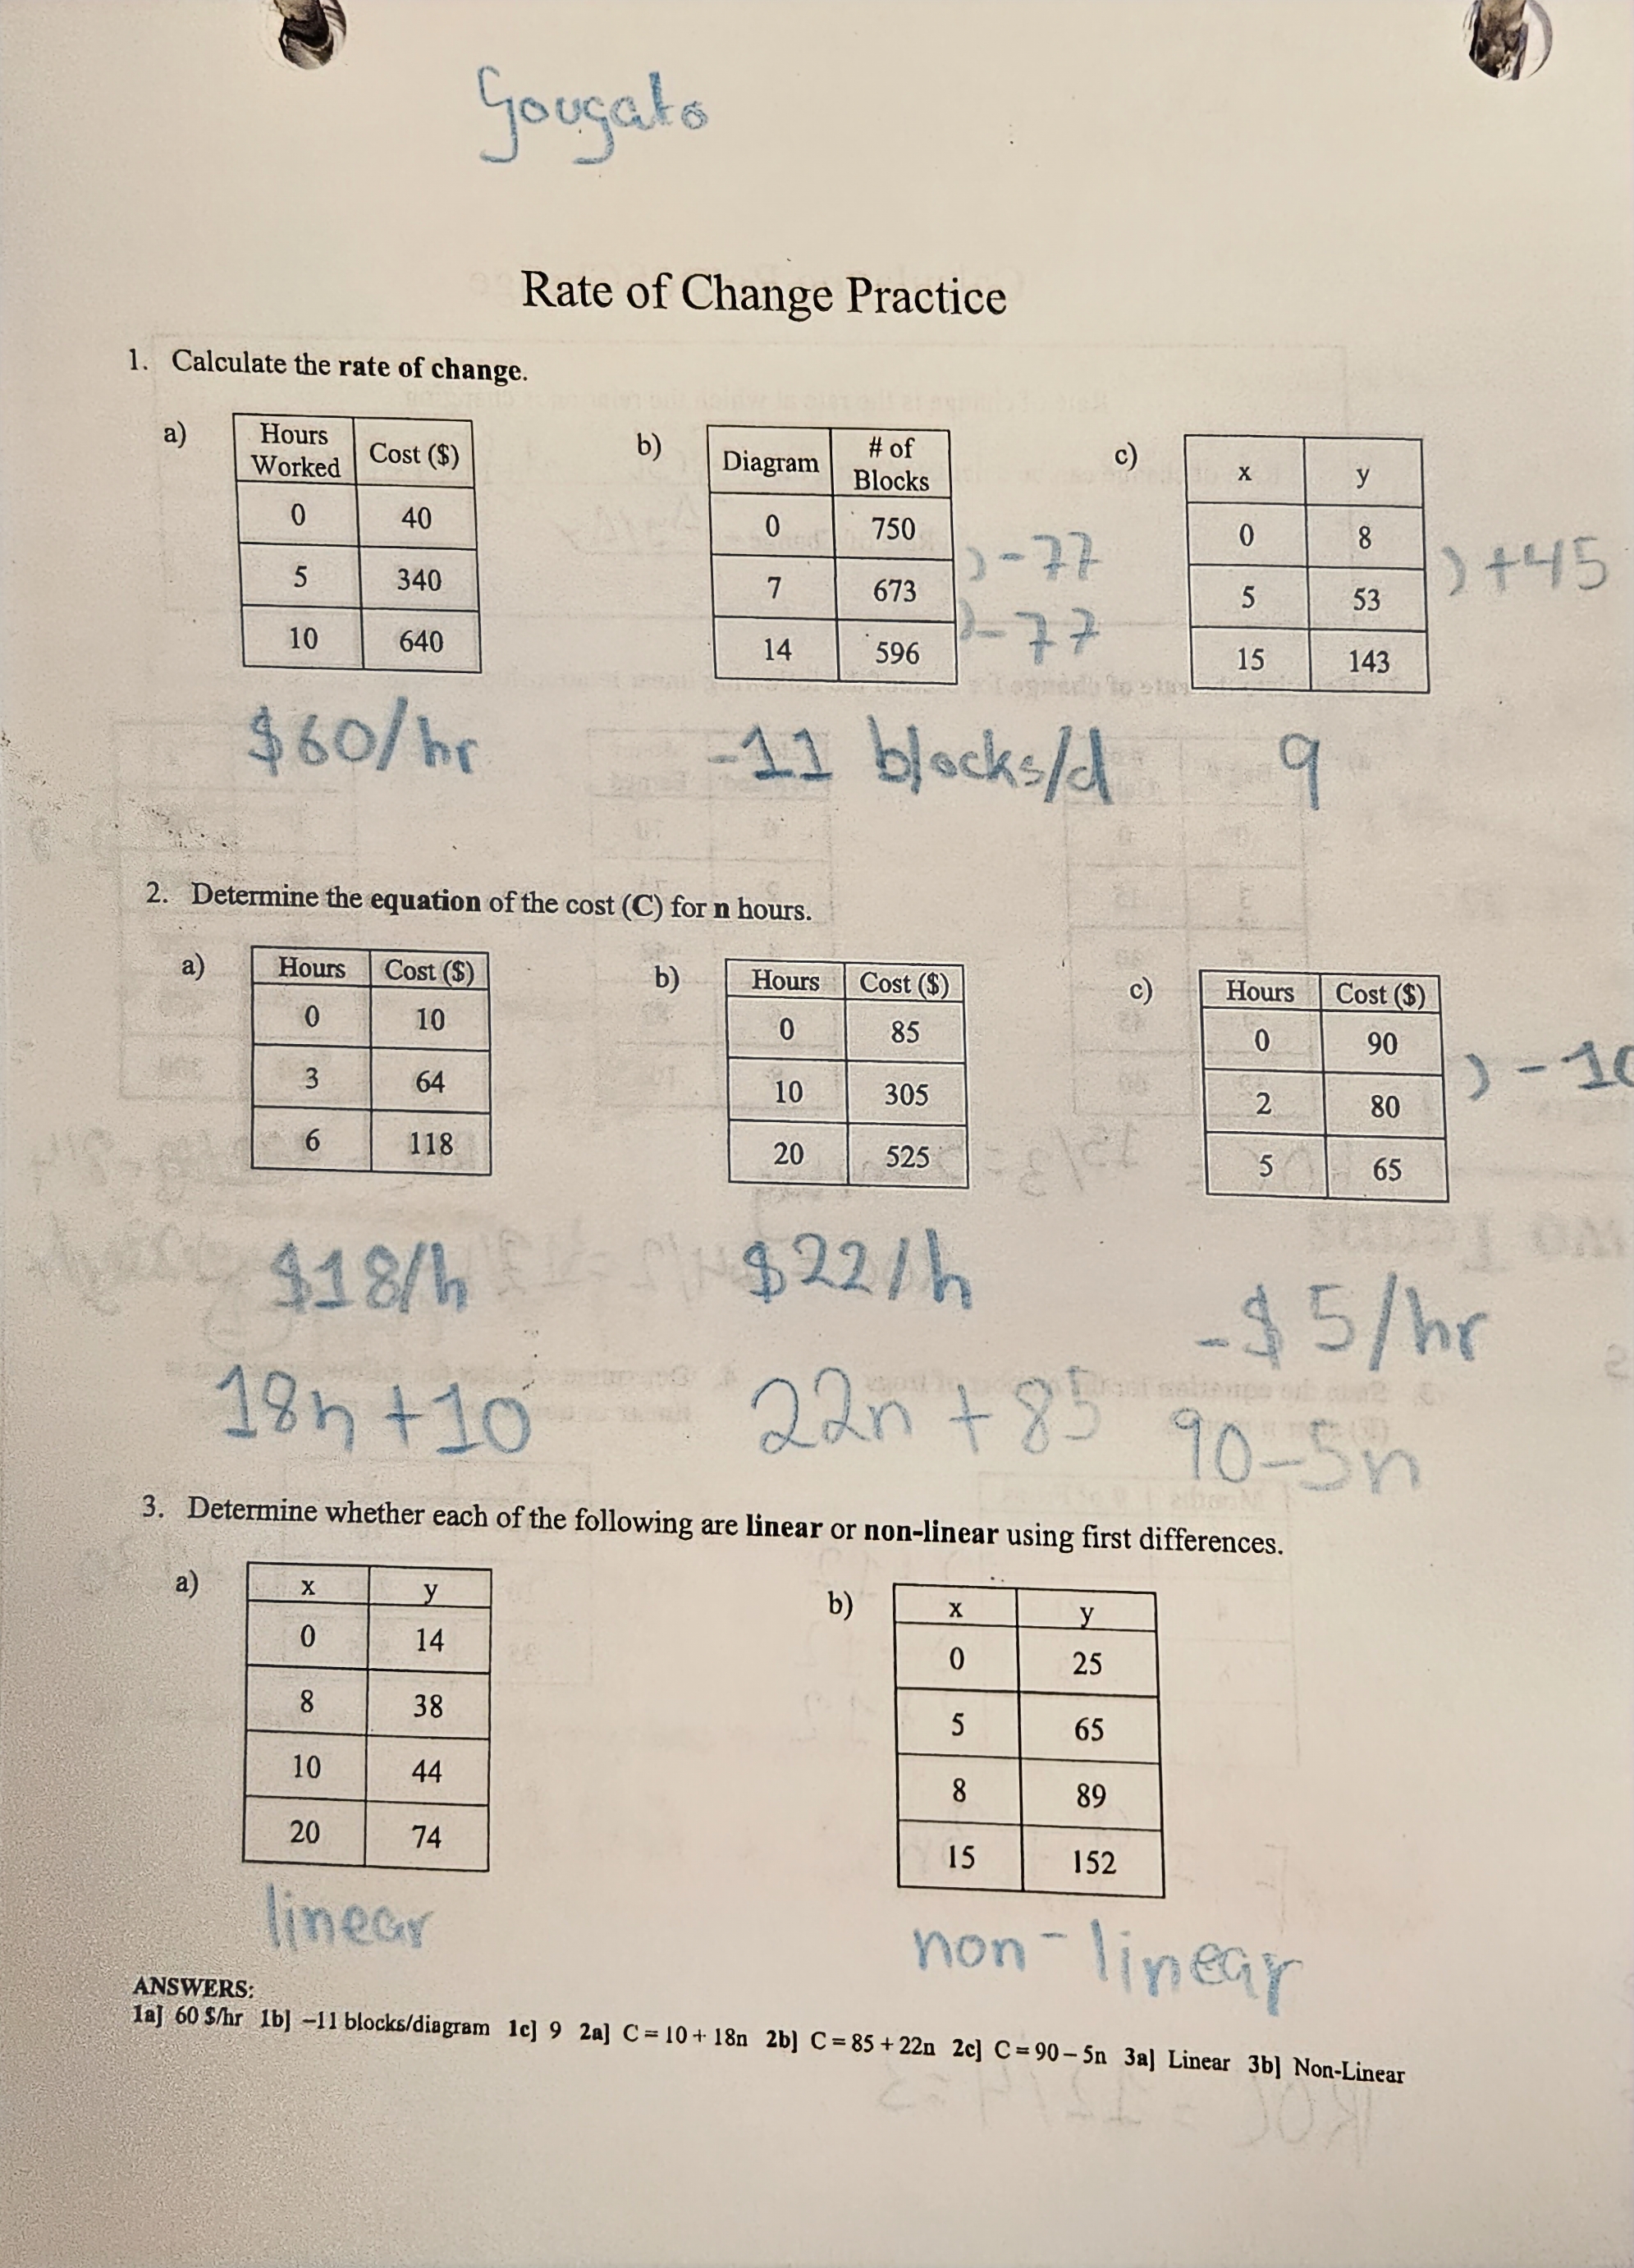 Gougato
Rate of Change Practice
1. Calculate the rate of change.
a) Hours Worked Cost ($)
0 40
5 340
10 640
$60/hr
b) Diagram # of Blocks
0 750
7 673
14 596
)-77
)-77
-11 blocks/d
c) x y
0 8
5 53
15 143
)+45
9
2. Determine the equation of the cost (C) for n hours.
a) Hours Cost ($)
0 10
3 64
6 118
$18/h
18n+10
b) Hours Cost ($)
0 85
10 305
20 525
$22/h
22n + 85
c) Hours Cost ($)
0 90
2 80
5 65
)-10
-$5/hr
90-5n
3. Determine whether each of the following are linear or non-linear using first differences.
a) x y
0 14
8 38
10 44
20 74
linear
b) x y
0 25
5 65
8 89
15 152
non-linear
ANSWERS:
1a] 60 $/hr 1b] –11 blocks/diagram 1c] 9 2a] C = 10 + 18n 2b] C = 85 + 22n 2c] C = 90 – 5n 3a] Linear 3b] Non-Linear